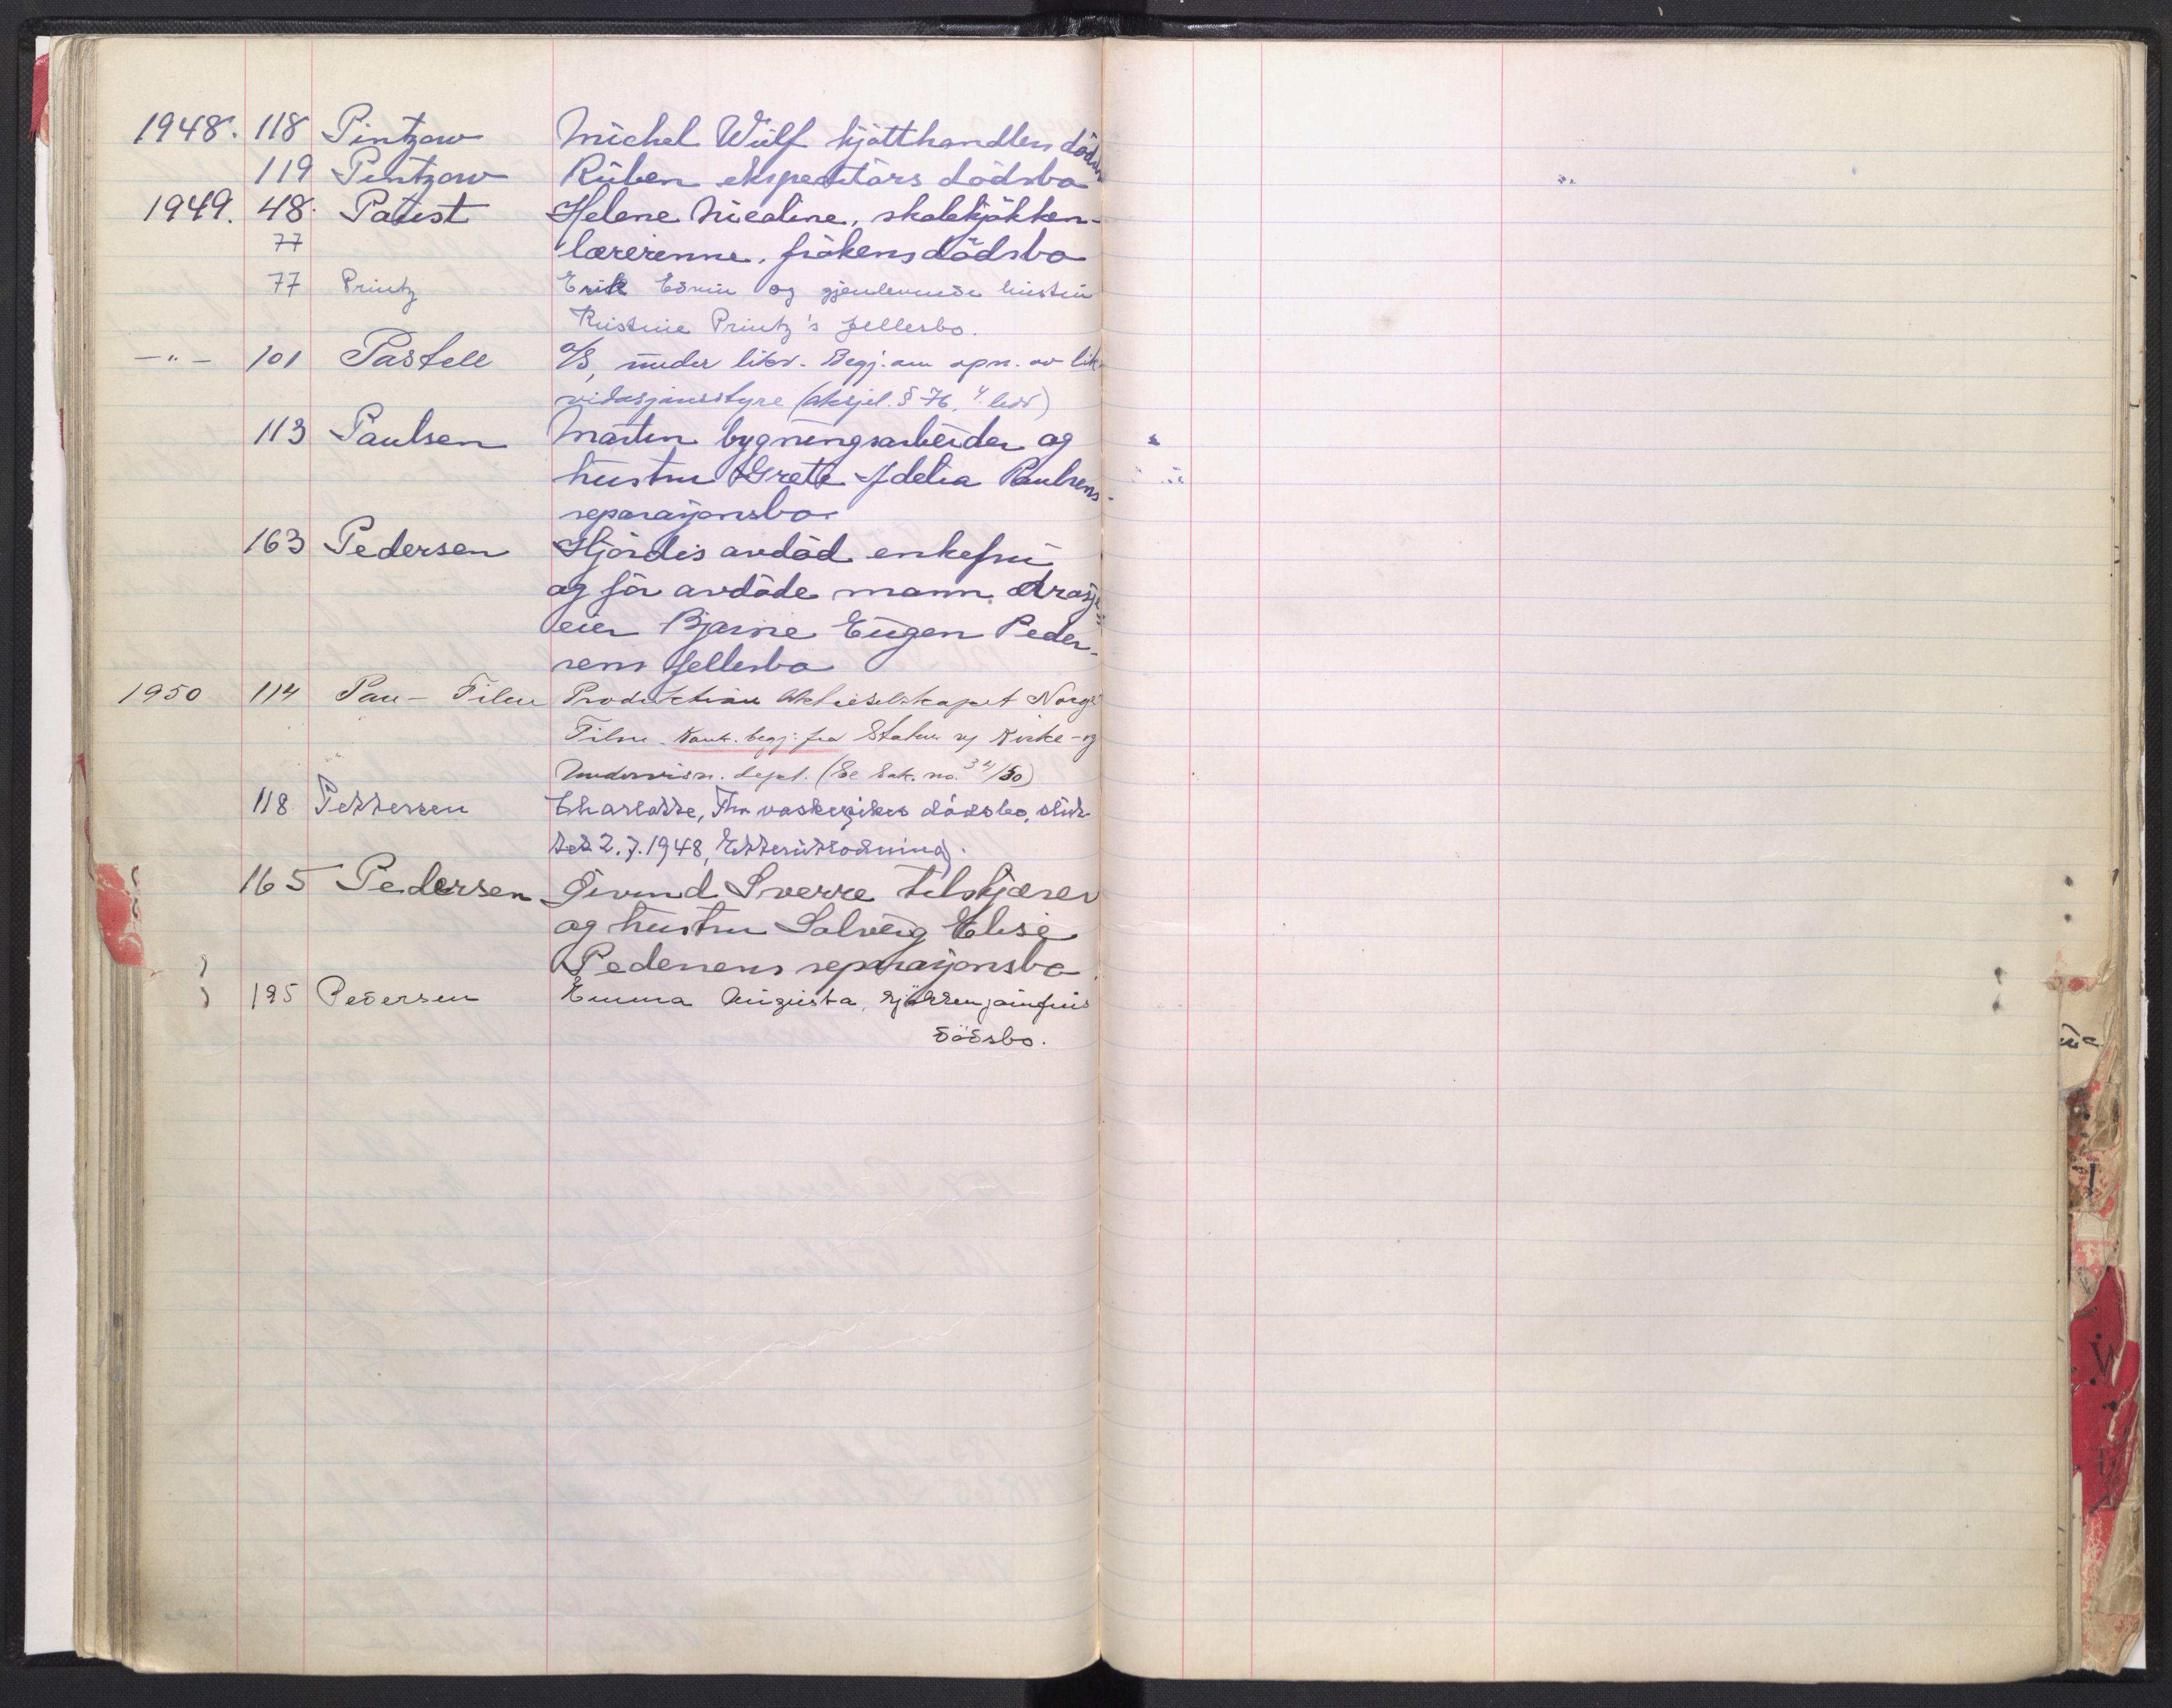 1948. 118 Pintzow Michel Wulf kjötthandlers dödsbo
119 Pintzow Rüben ekspeditörs dödsbo
1949. 48. Patist Helene Nicoline, skolekjökken-
77 lærerinne, frökens dödsbo
77 Printz Erik Edvin og gjenlevende hustru
Kristine Printz's fellesbo.
—"— 101 Pastell A/S, under likv. Begj. om opn. av lik-
vidasjonsstyre (Aksjel. § 76, 4. ledd)
113 Paulsen Martin bygningsarbeider og
hustru Grete Idelia Paulsens
separasjonsbo.
163 Pedersen Hjördis avdöd enkefru
og för avdöde mann, drosje-
eier Bjarne Eugen Peder-
sens fellesbo
1950 114 Pan - Film Produktion Aktieselskapet Norge
Film. Konk. begj. fra Staten v/ Kirke- og
Undervisn. dept. (Se Sak. no. 32/50)
118 Pettersen Charlotte, Fhv. vaskepikes dödsbo, slut-
tet 2.7.1948, Etterutlodning.
165 Pedersen Öivind Sverre tilskjærer
og hustru Solveig Elise
Pedersens separasjonsbo.
195 Pedersen Emma Augusta,
dödsbo.